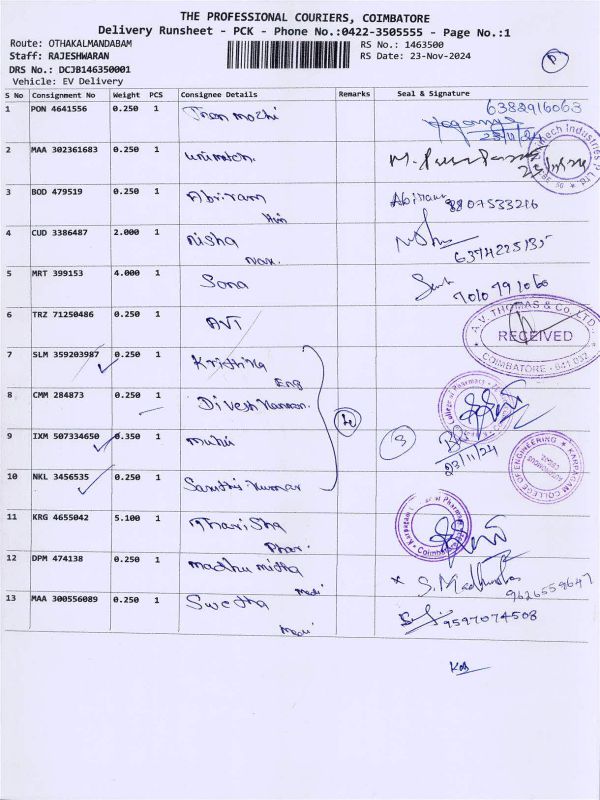 THE PROFESSIONAL COURIERS, COIMBATORE
Delivery Runsheet - PCK - Phone No.:0422-3505555 - Page No.:1
Route: OTHAKALMANDABAM
RS No.: 1463500
Staff: RAJESHWARAN
RS Date: 23-Nov-2024
DRS No.: DCJB146350001
Vehicle: EV Delivery
P
S No Consignment No Weight PCS Consignee Details Remarks Seal & Signature
1 PON 4641556 0.250 1 6382916063
23/11/24
2 MAA 302361683 0.250 1
3 BOD 479519 0.250 1 Abriram Abiram 8807533216
4 CUD 3386487 2.000 1 nisha
6374225135
5 MRT 399153 4.000 1 Sona
7010791060
6 TRZ 71250486 0.250 1 AVT
A.V. THOMAS & Co., LTD., RECEIVED COIMBATORE - 641 032
7 SLM 359203987 0.250 1 Krishna
Eng
8 CMM 284873 0.250 1 Divesh
College of Pharmacy
9 IXM 507334650 0.350 1
3
23/11/24
KARPAGAM COLLEGE OF ENGINEERING
AUTONOMOUS
10 NKL 3456535 0.250 1 Kumar
11 KRG 4655042 5.100 1 Tharisha
Phar.
Karpagam College of Pharmacy Coimbatore
12 DPM 474138 0.250 1 madhu mitha
medi
x S. Madhumitha
9626559647
13 MAA 300556089 0.250 1 Swetha
9597074508